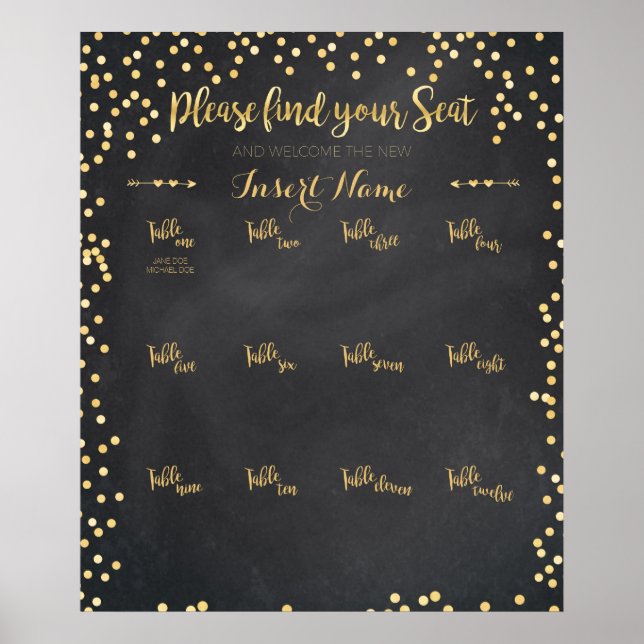 Please find your Seat
AND WELCOME THE NEW
Insert Name
Table one
JANE DOE
MICHAEL DOE
Table two
Table three
Table four
Table five
Table six
Table seven
Table eight
Table nine
Table ten
Table eleven
Table twelve